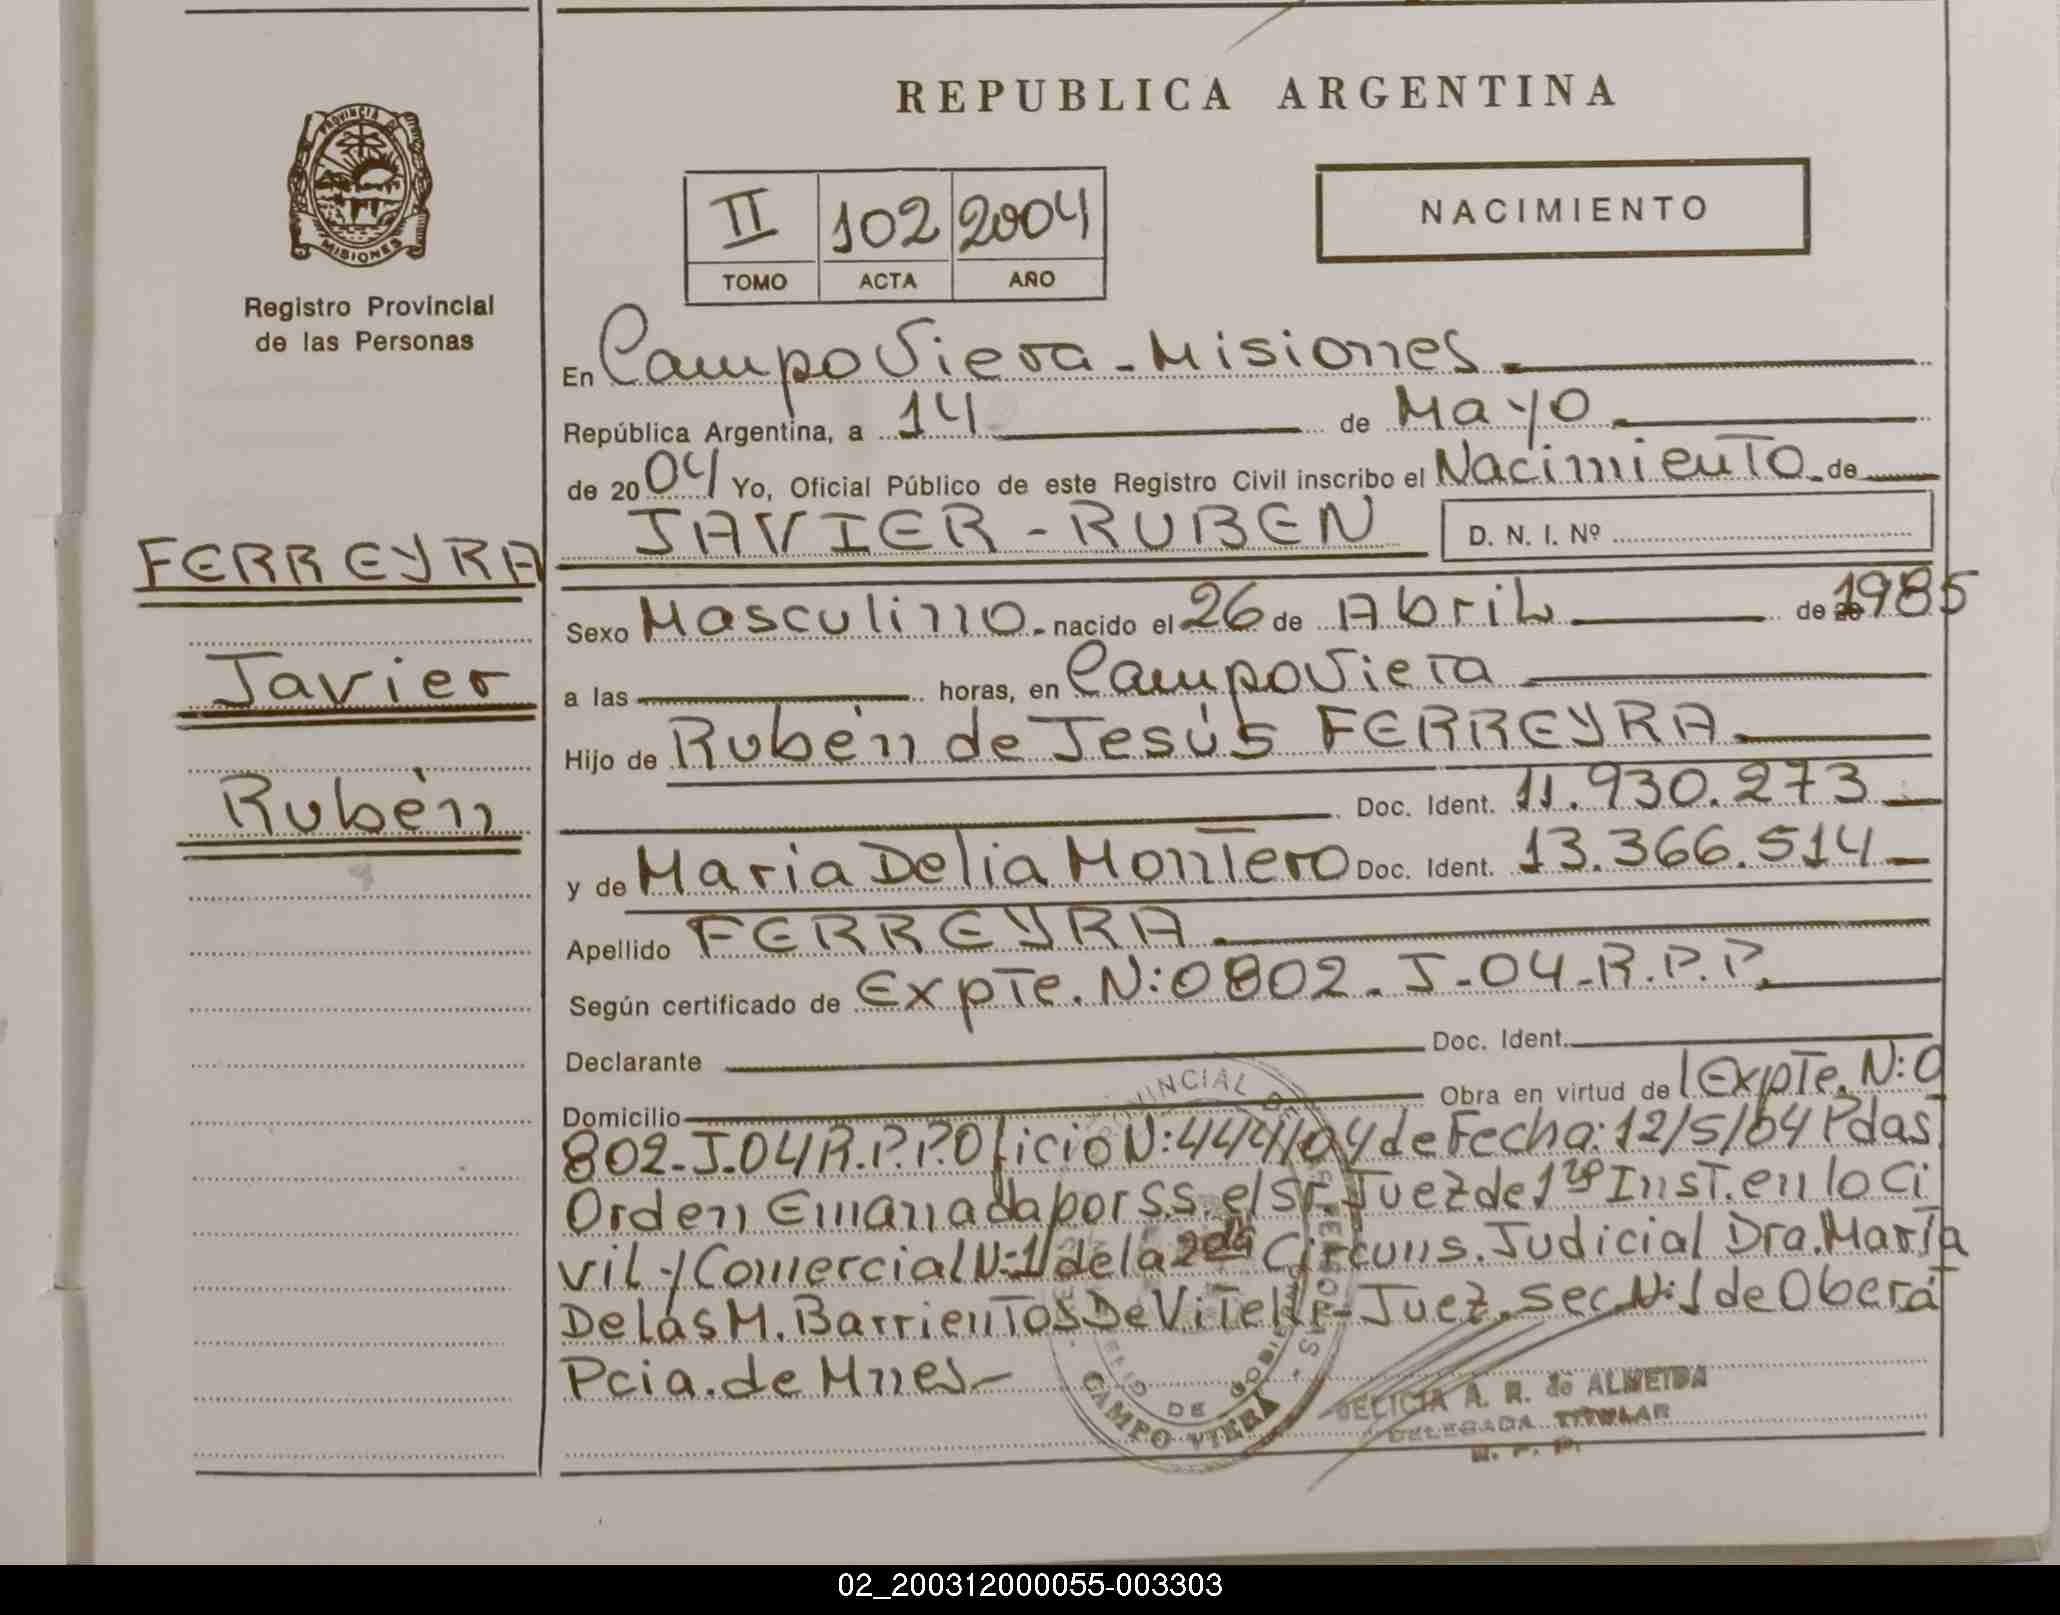 REPUBLICA ARGENTINA
PROVINCIA DE
MISIONES
Registro Provincial
de las Personas
II 102 2004
TOMO ACTA AÑO
NACIMIENTO
En Campo Viera - Misiones.
República Argentina, a 14 de Mayo
de 2004 Yo, Oficial Público de este Registro Civil inscribo el Nacimiento de
JAVIER - RUBEN D. N. I. Nº
FERREYRA
Javier
Rubén
Sexo Masculino. nacido el 26 de Abril de 1985
a las horas, en Campo Viera
Hijo de Rubén de Jesús FERREYRA.
Doc. Ident. 11.930.273
y de Maria Delia Montero Doc. Ident. 13.366.514
Apellido FERREYRA
Según certificado de Expte. N: 0802. J-04-R.P.P.
Declarante Doc. Ident.
Domicilio Obra en virtud de Expte. N:0
802-J-04 R.P.P. Oficio N:444/04 de Fecha: 12/5/04 Pdas
Orden Emanada por S.S. el Sr. Juez de 1ra Inst. en lo Ci
vil y Comercial N:1 de la 2da Circuns. Judicial Dra. María
De Las M. Barrientos De Vitelli - Juez. Sec. N:1 de Oberá
Pcia. de Mnes-
CAMPO VIERA
DELICIA A. R. de ALMEIDA
DELEGADA TITULAR
R. P. P.
02_200312000055-003303